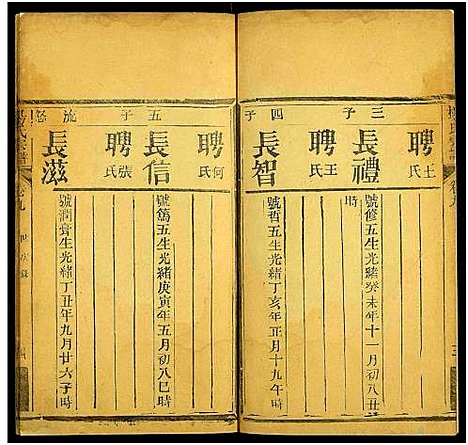 三子
長禮
聘王氏
號修五生光緒癸未年十一月初八丑時
四子
長智
聘王氏
號哲五生光緒丁亥年正月十九午時
五子
長信
聘何氏
號篤五生光緒庚寅年五月初八巳時
流
長滋
聘張氏
號潤膏生光緒丁丑年九月廿六子時
楊氏宗譜
卷九
世系